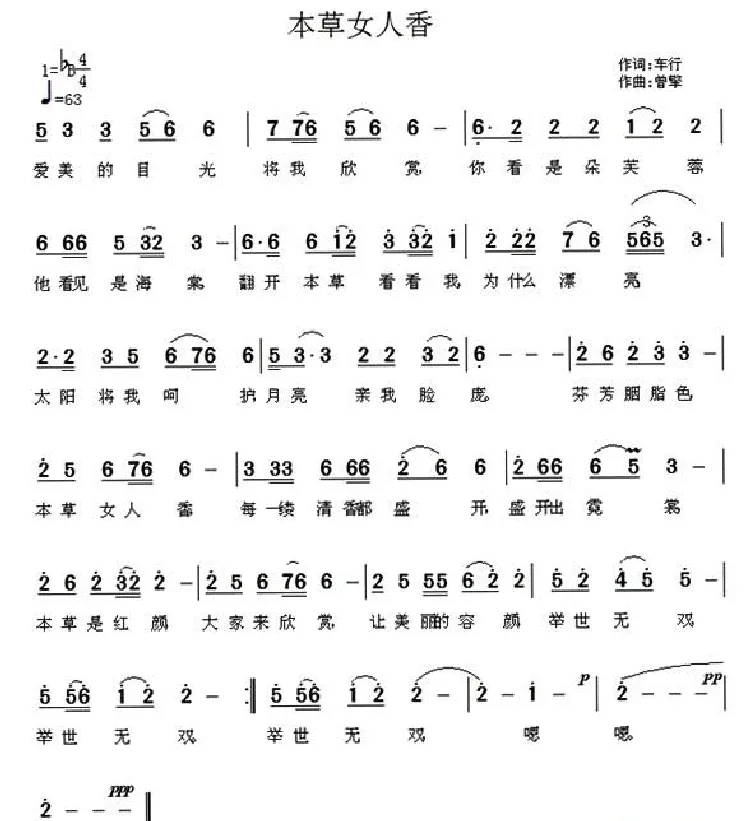 本草女人香
1=♭B 4/4
作词:车行
♩=63
作曲:曾擎
5 3 3 5 6 6 | 7 76 5 6 6 – | 6· 2 2 2 1 2 2
爱美的目光 将我欣赏 你看是朵芙蓉
6 66 5 32 3 – | 6·6 6 12 3 32 1 | 2 22 7 6 565 3·
他看见是海棠 翻开本草看看我 为什么漂亮
2·2 3 5 6 76 6 | 5 3·3 2 2 3 2 | 6 – – – | 2 6 2 3 3 – |
太阳将我呵护 月亮亲我脸庞 芬芳胭脂色
2 5 6 76 6 – | 3 33 6 66 2 6 6 | 2 66 6 5 3 – |
本草女人香 每一缕清香都盛开 盛开出霓裳
2 6 2 32 2 – | 2 5 6 76 6 – | 2 5 55 6 2 2 | 5 2 4 5 5 – |
本草是红颜 大家来欣赏 让美丽的容颜 举世无双
5 56 1 2 2 – :‖ 5 56 1 2 2 – | 2 – 1 – p | 2 – – pp |
举世无双 举世无双 嗯 嗯
2 – – – ppp ‖